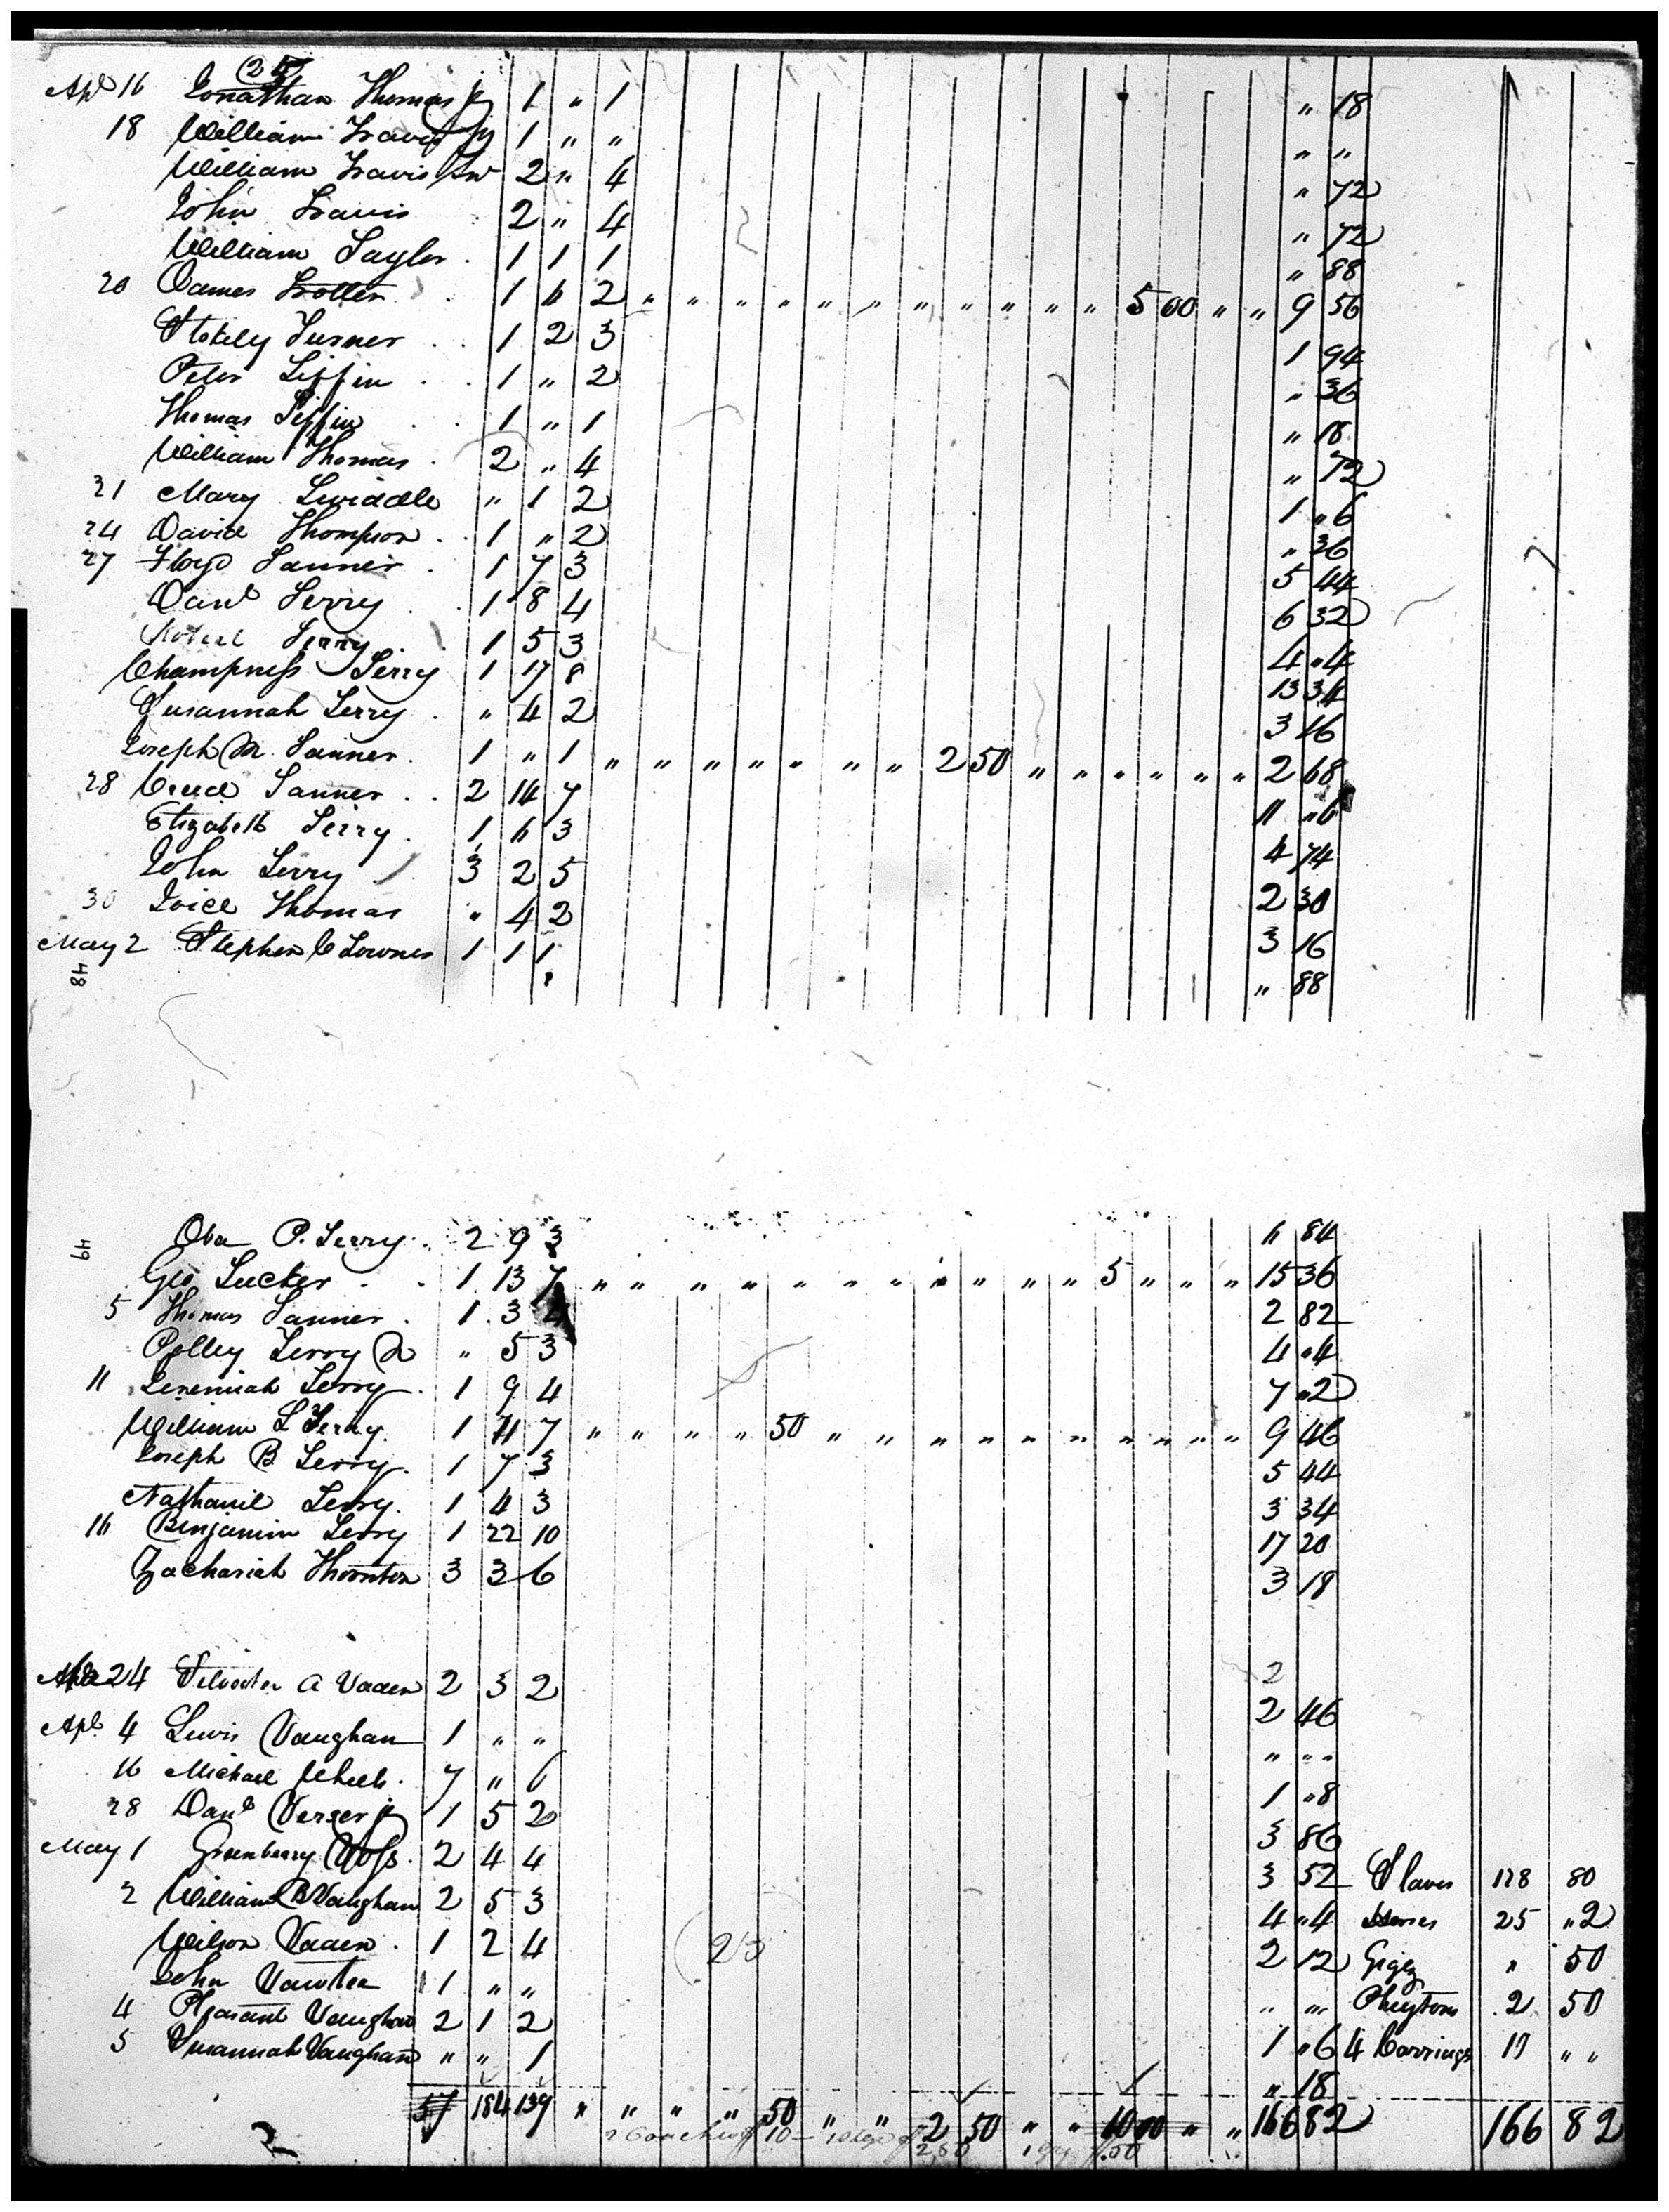 (25)
Apl 16 Jonathan Thomas jr 1 " 1 " 18
18 William Travis jr 1 " " " "
William Travis Snr 2 " 4 " 72
John Travis 2 " 4 " 72
William Taylor 1 1 1 " 88
20 James Trotter 1 6 2 " " " " " " " " " " " 5 00 " " 9 56
Stokely Turner 1 2 3 1 94
Peter Tiffin 1 " 2 " 36
Thomas Tiffin 1 " 1 " 18
William Thomas 2 " 4 " 72
21 Mary Twiddle " 1 2 1 "6
24 David Thompson 1 " 2 " 36
27 Floyd Tanner 1 7 3 5 44
Danl Terry 1 8 4 6 32
Robert Terry 1 5 3 4 "4
Champness Terry 1 17 8 13 34
Susannah Terry " 4 2 3 16
Joseph M. Tanner 1 " 1 " " " " " " " 2 50 " " " " " " 2 68
28 Creed Tanner 2 14 7 11 "6
Elizabeth Terry 1 6 3 4 74
John Terry 3 2 5 2 30
30 Joice Thomas " 4 2 3 16
May 2 Stephen C Townes 1 1 1 " 88
48
49
Oba P. Terry 2 9 3 6 84
Geo Tucker 1 13 7 " " " " " " " " " " " 5 " " " 15 36
5 Thomas Tanner 1 3 4 2 82
Polley Terry " 5 3 4 "4
11 Jeremiah Terry 1 9 4 7 "2
William L Terry 1 11 7 " " " " 50 " " " " " " " " " 9 46
Joseph B Terry 1 7 3 5 44
Nathaniel Terry 1 4 3 3 34
16 Benjamin Terry 1 22 10 17 20
Zachariah Thornton 3 3 6 3 18
2
24 A Vaden 2 3 2 2 46
Apl 4 Lewis Vaughan 1 " " " " "
16 Michael 7 " 6 1 "8
28 Danl Verser jr 1 5 2 3 86
May 1 Greenberry Voss 2 4 4 3 52 Slaves 128 80
2 William B Vaughan 2 5 3 4 "4 Horses 25 "2
Wilson Vaden 1 2 4 2 12 Gigs " 50
(25
John Vawter 1 " " " " Pheytons 2 50
4 Pleasant Vaughan 2 1 2 1 "6 4 Carriages 10 " "
5 Susannah Vaughan " " 1 " 18
57 184 139 " " " " 50 " " 2 50 " " 10 00 " " 166 82 166 82
2 Coaches 10